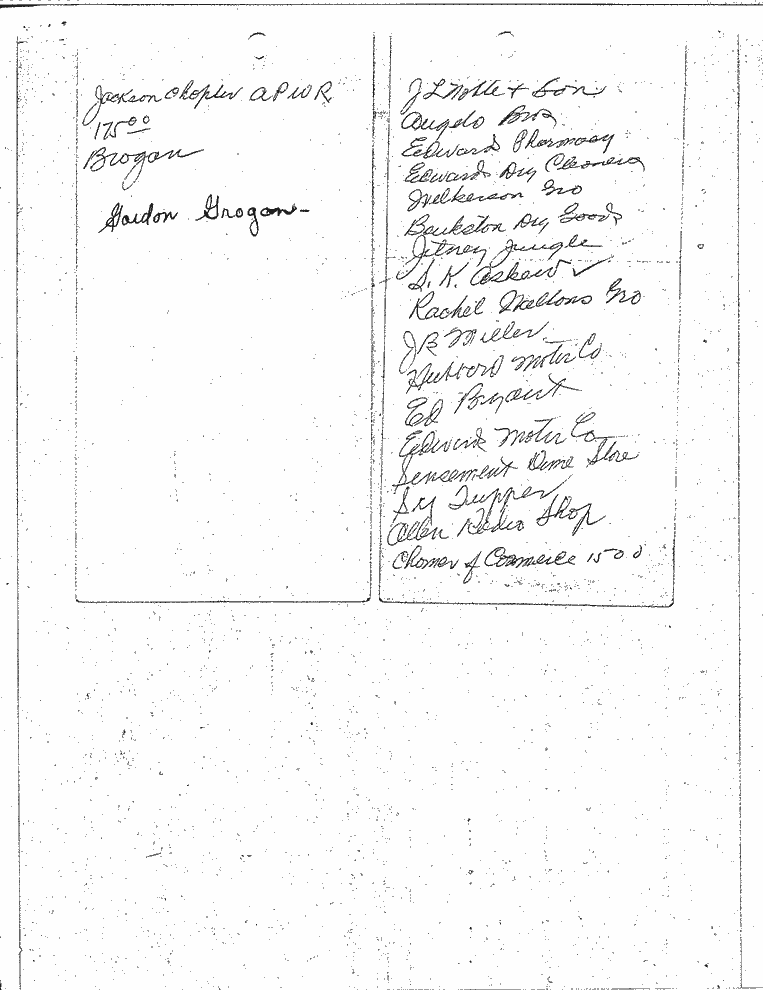 Jackson Chapter APWR
175.00
Brogan
Gordon Grogan-
J L Noble & Son
Angelo Bros
Edward Pharmacy
Edwards Dry Cleaners
Gro
Bankston Dry Goods
Jitney Jungle
S. K. Askew ✓
Rachel Mellons Gro
JB Miller
Hubbard Motor Co
Ed Bryant
Edwards Motor Co
Sensement Dime Store
Tupper
Allen Radio Shop
Chamer of Commerce 1500